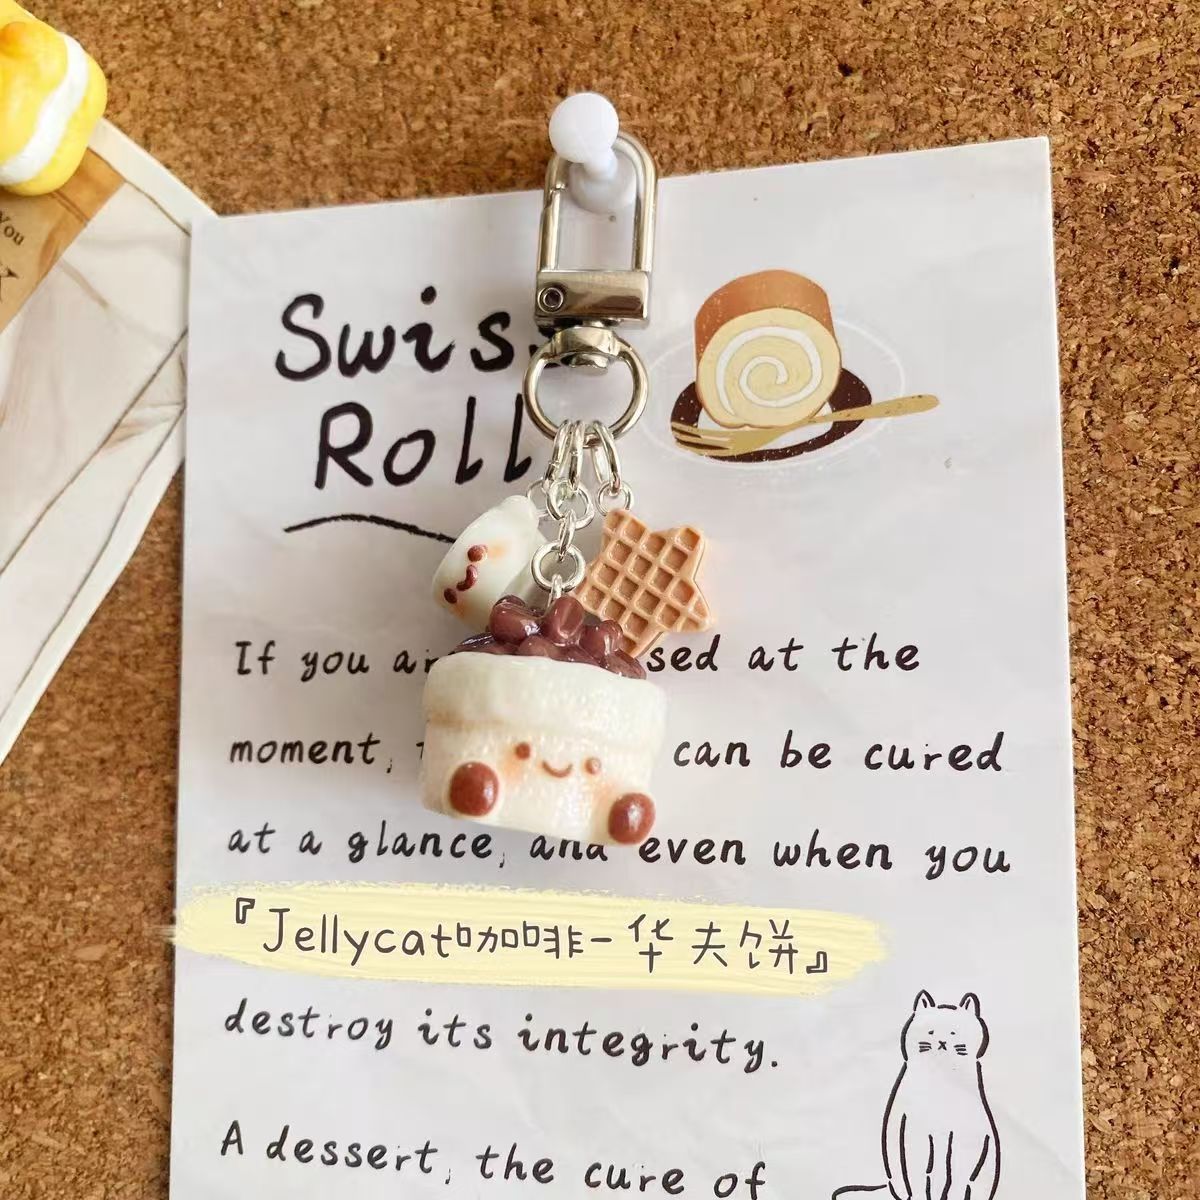 You
Swiss
Roll
If you sed at the
moment, can be cured
at a glance, and even when you
『Jellycat咖啡-华夫饼』
destroy its integrity.
A dessert, the cure of